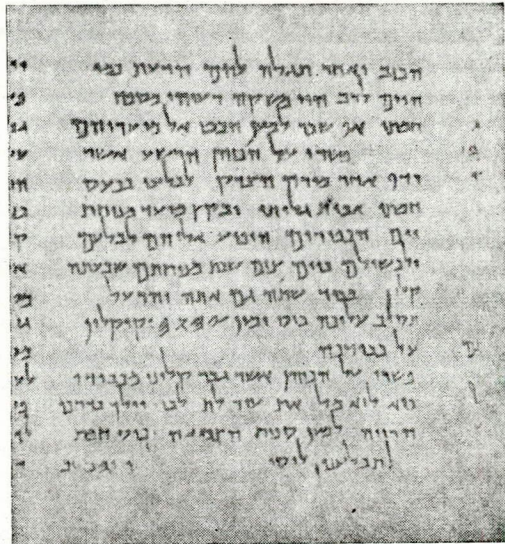 הכזב ואחר תגלה להם הדעת כמי
הים לרב הוי משקה רעיהו מספח
חמתו אף שכר למען הבט אל מועדיהם
פשרו על הכוהן הרשע אשר
רדף אחר מורה הצדק לבלעו בכעס
חמתו אבית גלותו ובקץ מועד מנוחת
יום הכפורים הופיע אליהם לבלעם
ולכשילם ביום צום שבת מנוחתם שבעתה
קלון מכבוד שתה גם אתה והרעל
תסוב עליכה כוס ימין 𐤉𐤄𐤅𐤄 וקיקלון
על כבודכה
פשרו על הכוהן אשר גבר קלונו מכבודו
כיא לוא מל את עורלת לבו וילך בדרכי
הרויה למען ספות הצמאה וכוס חמת
תבלענו לוסי